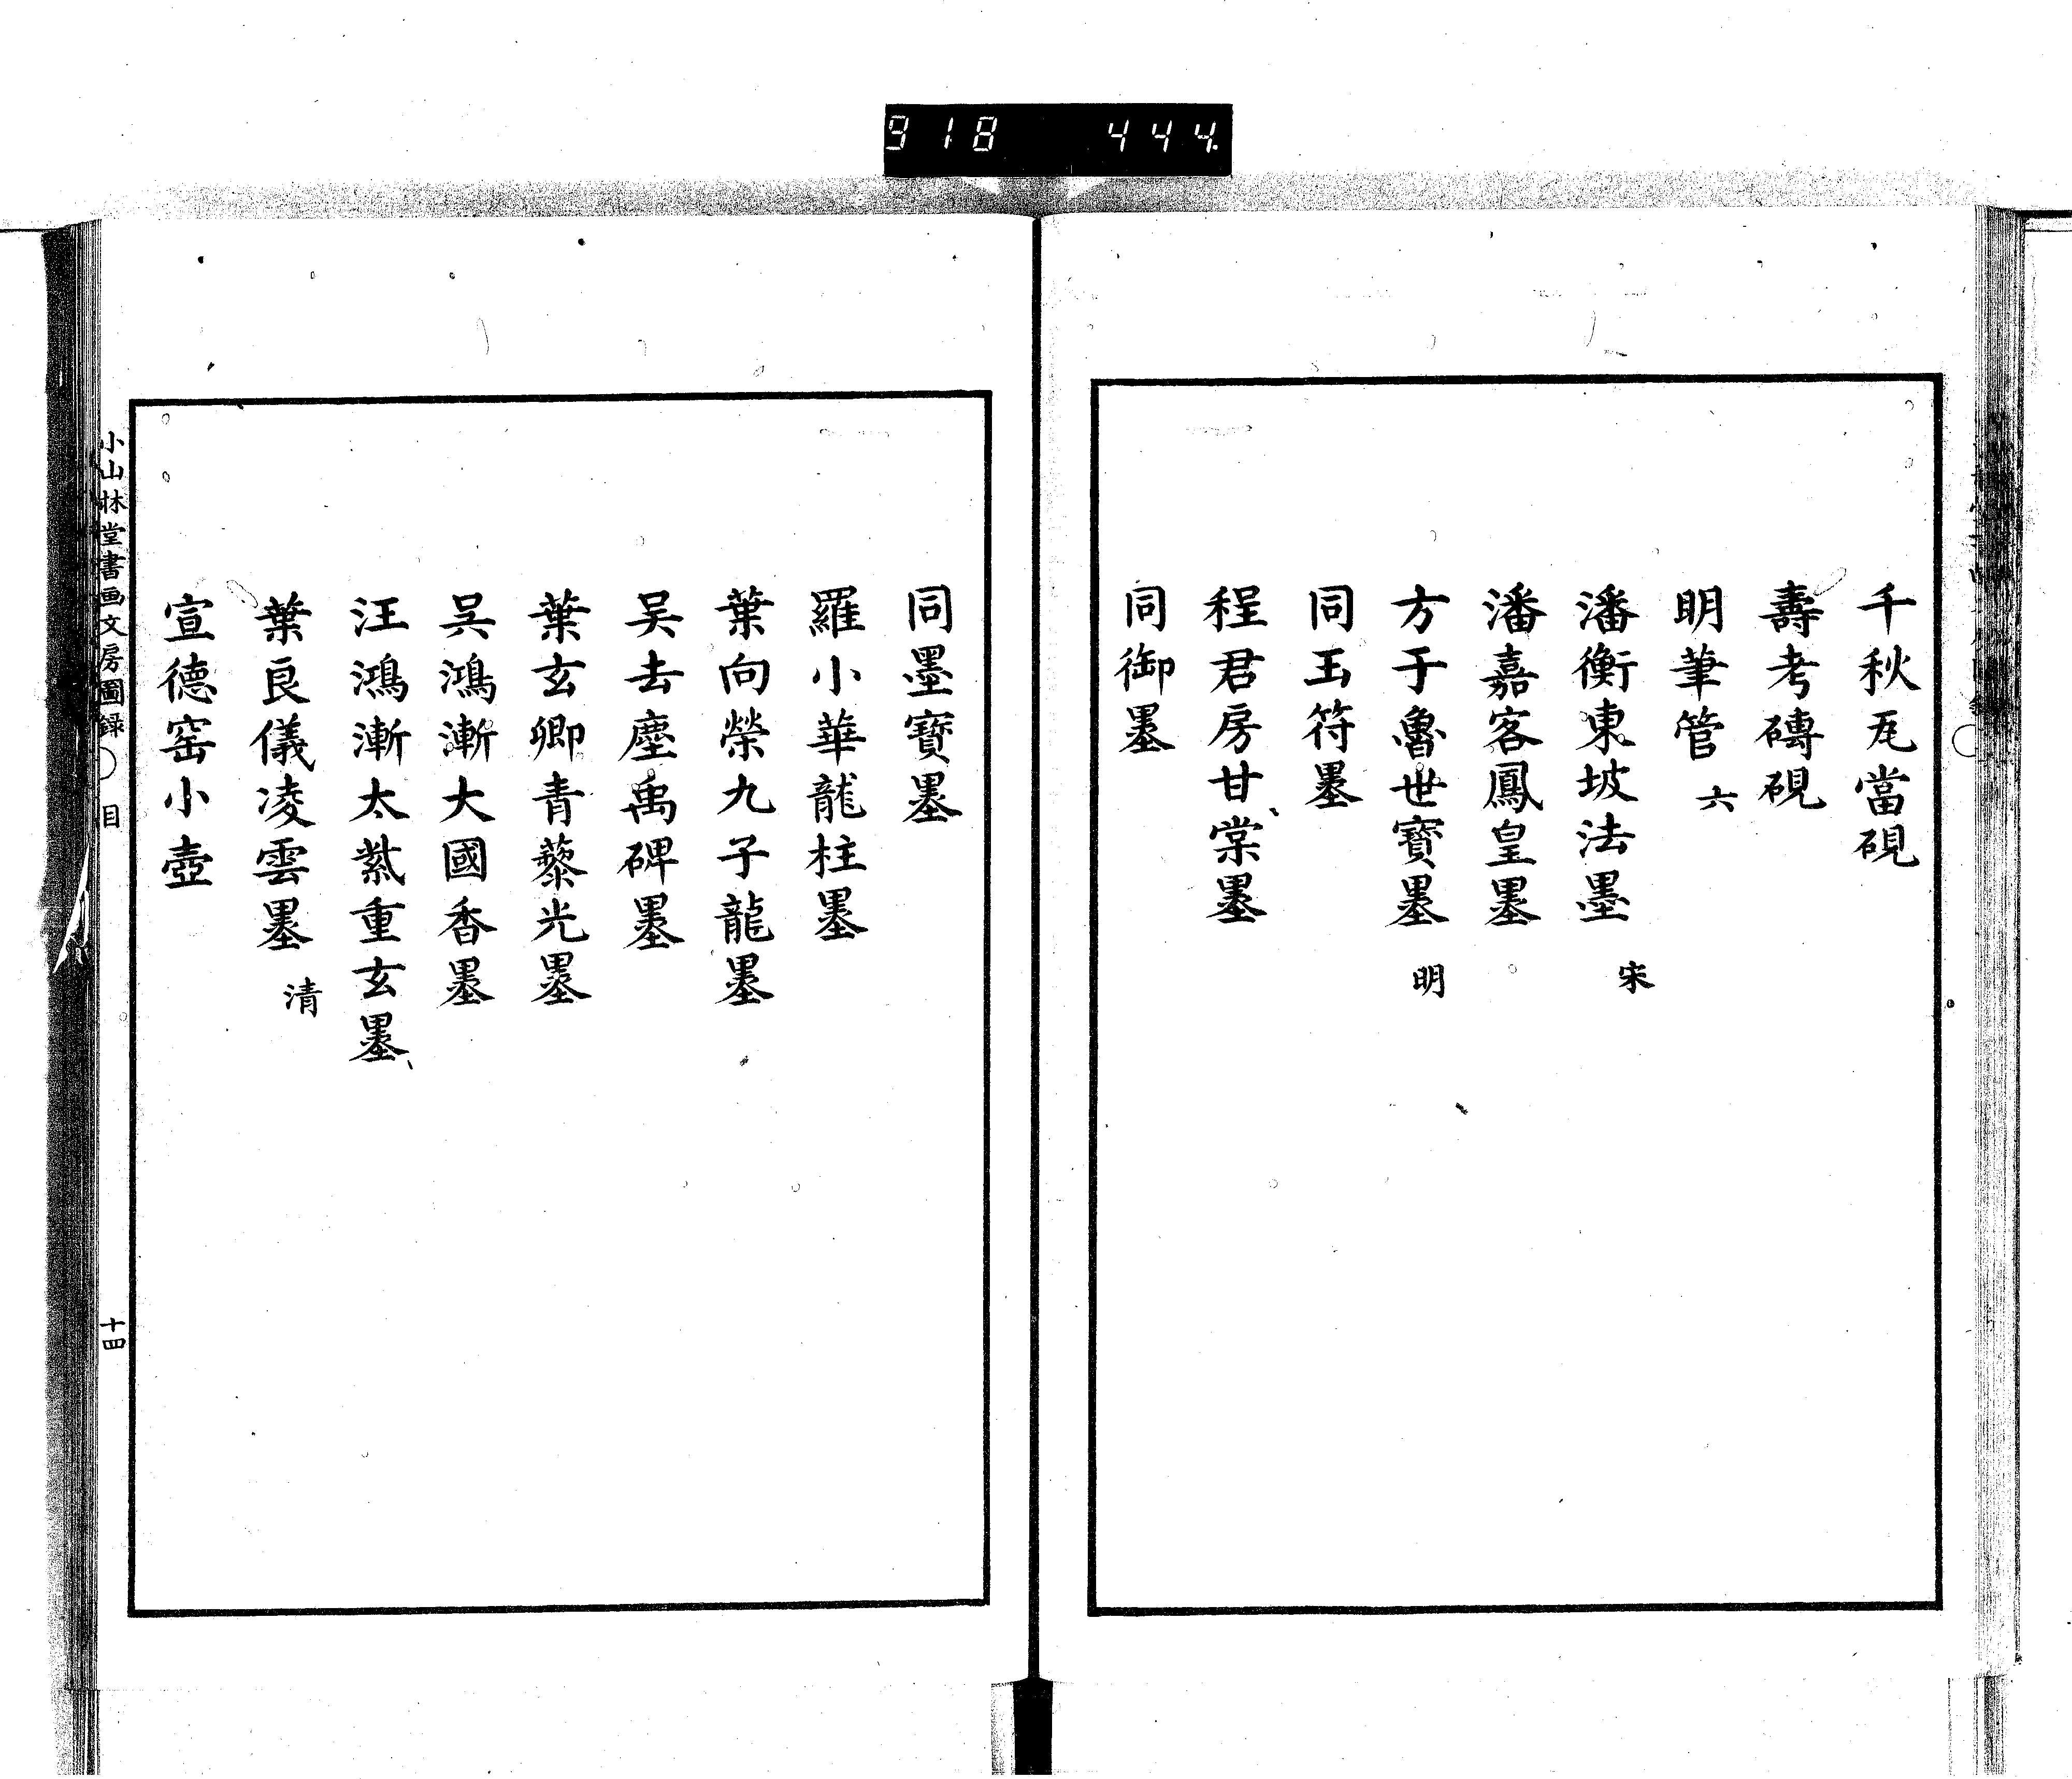 918 444
千秋瓦當硯
壽考磚硯
明筆管 六
潘衡東坡法墨 宋
潘嘉客鳳皇墨
方于魯世寶墨 明
同玉符墨
程君房甘棠墨
同御墨
同墨寶墨
羅小華龍柱墨
葉向榮九子龍墨
吴去塵禹碑墨
葉玄卿青藜光墨
呉鴻漸大國香墨
汪鴻漸太紫重玄墨
葉良儀凌雲墨 清
宣德窑小壺
小山林堂書画文房圖録 目 十四